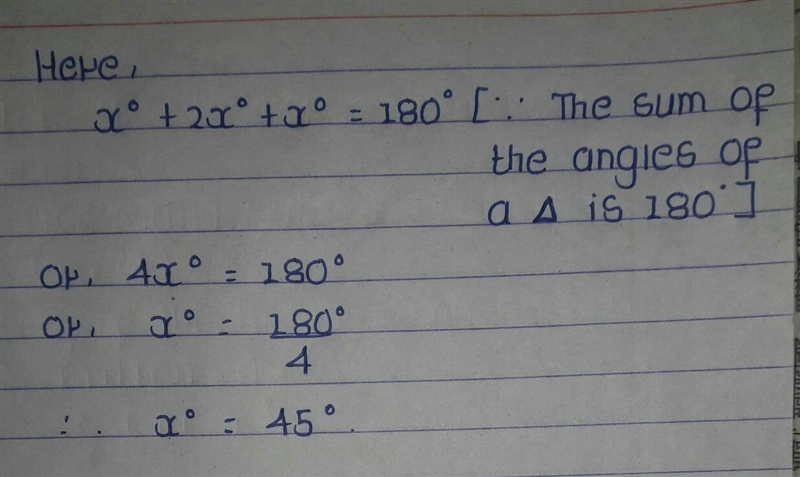 Here,
x° + 2x° + x° = 180° [∵ The sum of
the angles of
a Δ is 180°]
or, 4x° = 180°
or, x° = 180°
4
∴ x° = 45°.